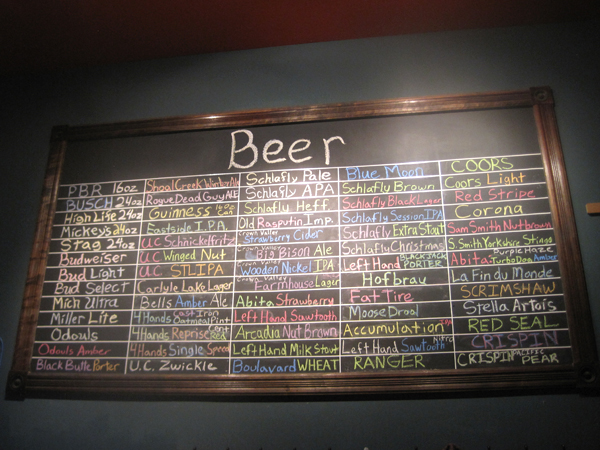 Beer
PBR 16oz
BUSCH 24oz
High Life 24oz
Mickey's 24oz
Stag 24oz
Budweiser
Bud Light
Bud Select
Mich Ultra
Miller Lite
Odouls
Odouls Amber
Black Butte Porter
Shoal Creek
Rogue Dead Guy ALE
Guinness
Eastside I.P.A.
U.C Schnickelfritz
U.C Winged Nut
U.C STLIPA
Carlyle Lake Lager
Bells Amber Ale
4Hands Cast Iron Oatmeal
4Hands Reprise Cent Red
4Hands Single Speed
U.C. Zwickle
Schlafly Pale
Schlafly APA
Schlafly Heff
Old Rasputin Imp.
Crown Valley Strawberry Cider
Big Bison Ale
Crown Valley Wooden Nickel IPA
Farmhouse Lager
Abita Strawberry
Left Hand Sawtooth
Arcadia Nut Brown
Left Hand Milk Stout
Boulavard WHEAT
Blue Moon
Schlafly Brown
Schlafly Black Lager
Schlafly Session IPA
Schlafly Extra Stout
Schlafly Christmas
Left Hand BLACK JACK PORTER
Hofbrau
Fat Tire
Moose Drool
Accumulation
Left Hand Sawtooth Nitro
RANGER
COORS
Coors Light
Red Stripe
Corona
Sam Smith Nutbrown
S. Smith Yorkshire Stingo
Abita Purple Haze Turbo Dog Amber
La Fin du Monde
SCRIMSHAW
Stella Artois
RED SEAL
CRISPIN
CRISPIN PACIFIC PEAR